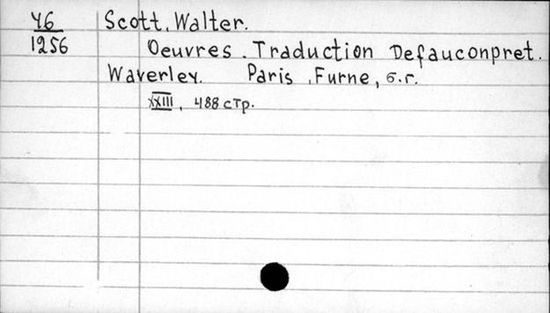 46
1256
Scott, Walter.
Oeuvres. Traduction Defauconpret.
Waverley. Paris, Furne, б.г.
XXIII, 488 стр.